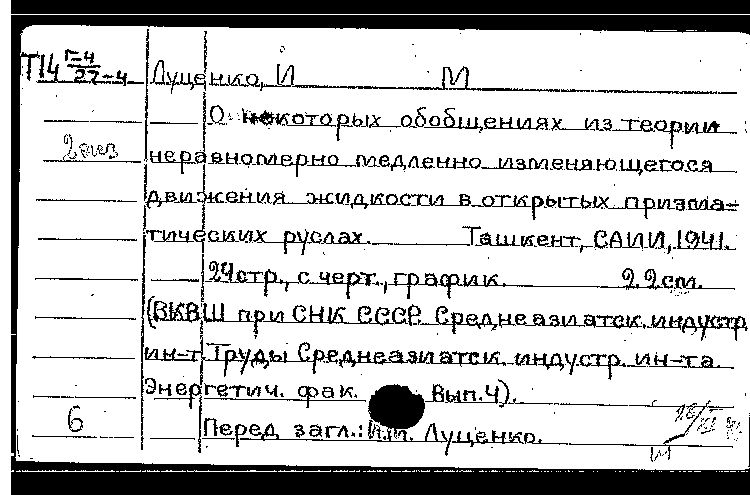 Т14 Г-4/27-4 Луценко, И М
О некоторых обобщениях из теории
2 экз неравномерно медленно изменяющегося
движения жидкости в открытых призма=
тических руслах. Ташкент, САИИ, 1941.
24 стр., с черт., график. 22 см.
(ВКВШ при СНК СССР. Среднеазиатск. индустр
ин-т. Труды Среднеазиатск. индустр. ин-та.
Энергетич. фак. Вып. 4).
6 Перед загл.: И.М. Луценко.